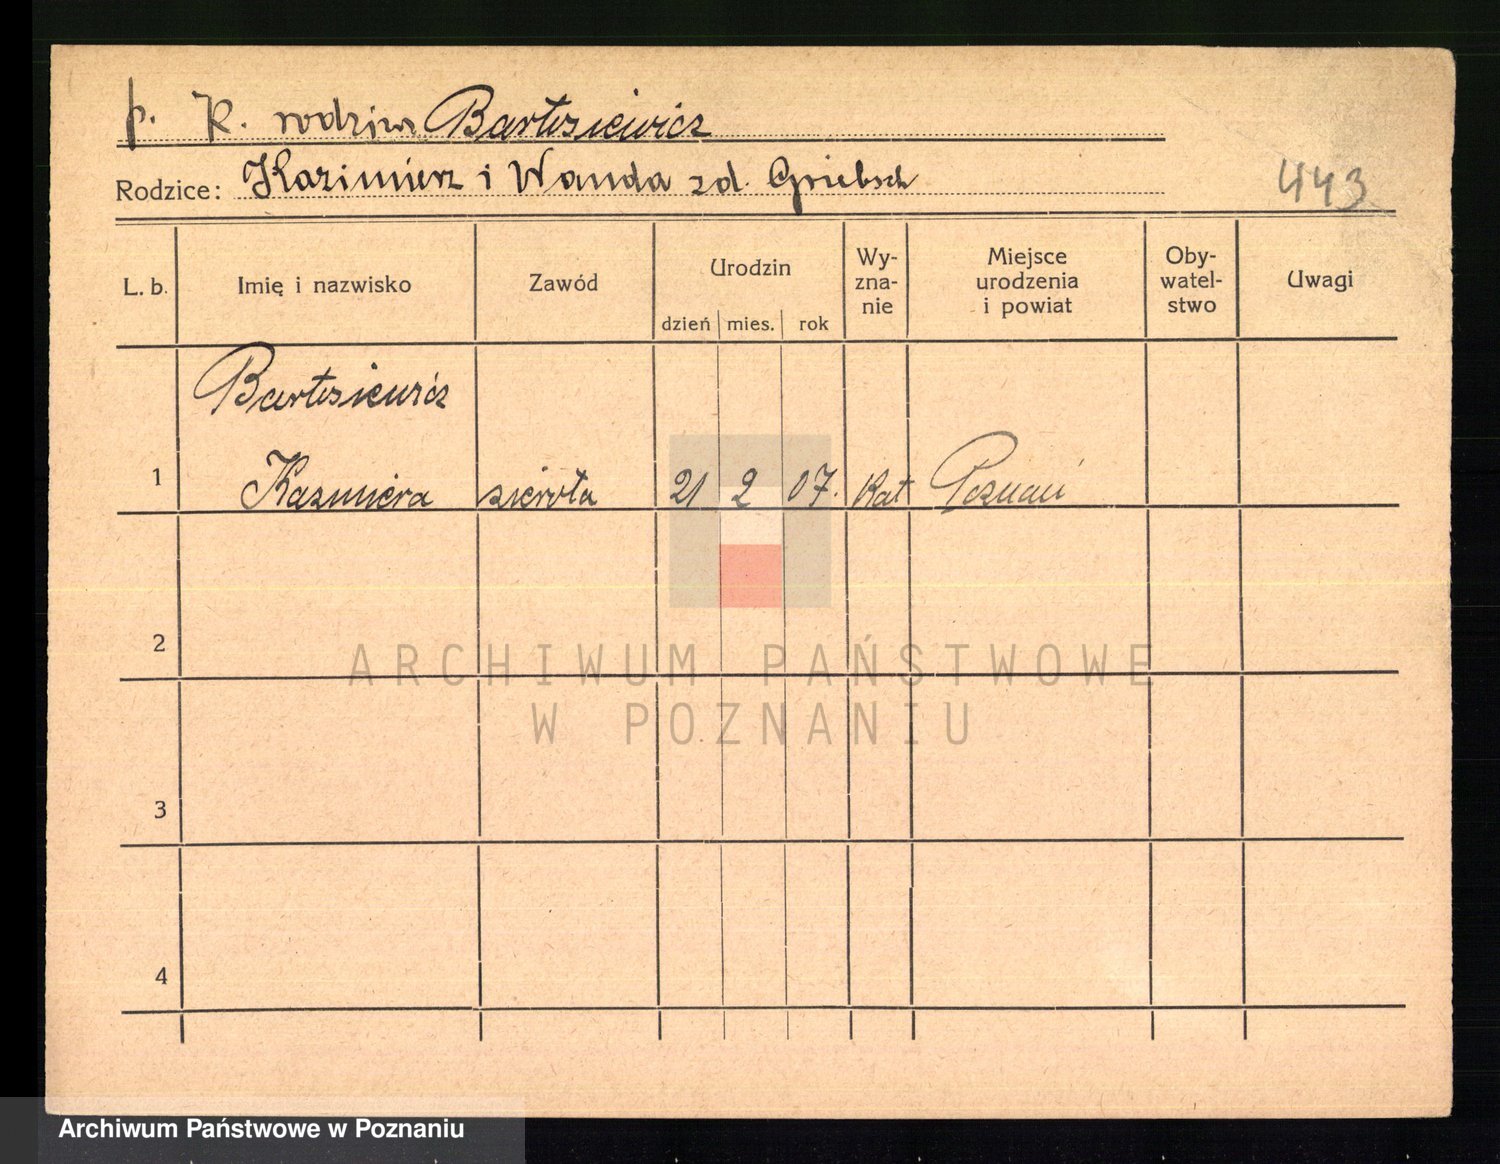 p. K. rodzina Bartosiewicz
Rodzice: Kazimierz i Wanda zd. Griebsch
443
L. b. Imię i nazwisko Zawód Urodzin dzień mies. rok Wy-zna-nie Miejsce urodzenia i powiat Oby-watel-stwo Uwagi
Bartosiewicz
1 Kazimiera sierota 21 2 07. Kat Poznań
2
ARCHIWUM PAŃSTWOWE
W POZNANIU
3
4
Archiwum Państwowe w Poznaniu